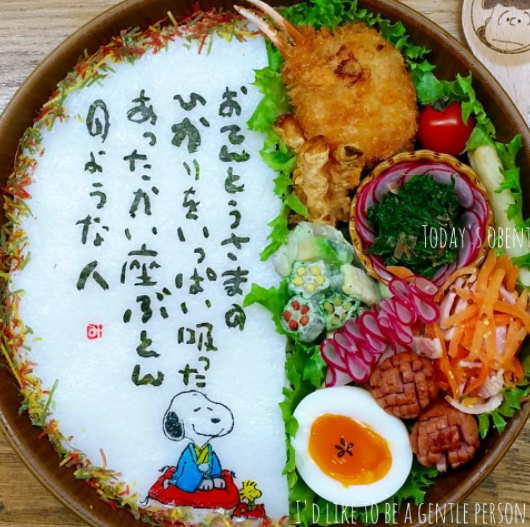 おてんとうさまの
ひかりをいっぱい吸った
あったかい座ぶとん
のような人
TODAY'S OBENT
I'D LIKE TO BE A GENTLE PERSON